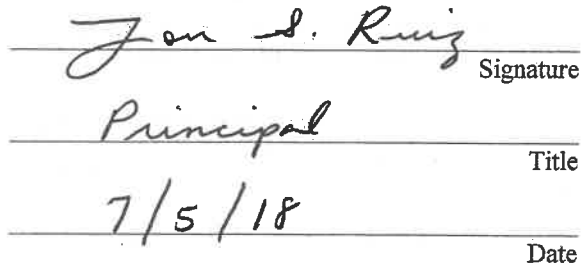 Jon S. Ruiz
Signature
Principal
Title
7/5/18
Date